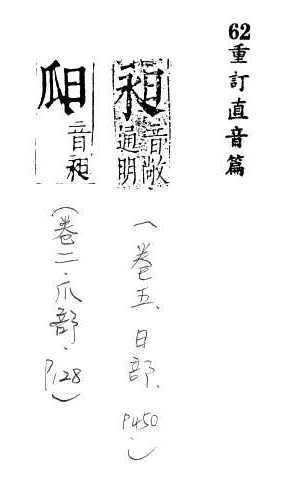 62重訂直音篇
昶音敞
通明
(卷五、日部、P450)
音昶
(卷二、爪部、P128)